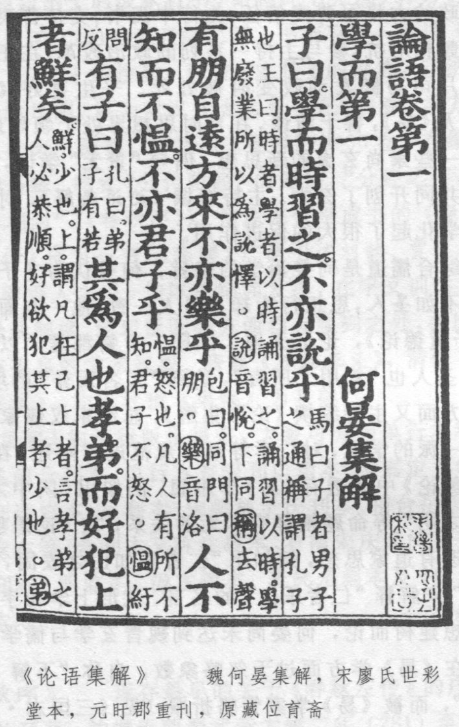 論語卷第一
學而第一 何晏集解
子曰學而時習之不亦說乎 馬曰子者男子之通稱謂孔子
也王曰時者學者以時誦習之誦習以時學
無廢業所以爲說懌。說音悅下同稱去聲
有朋自遠方來不亦樂乎 包曰同門曰朋。樂音洛 人不
知而不慍不亦君子乎 慍怒也凡人有所不知君子不怒。慍紆
問反 有子曰 孔曰弟子有若 其爲人也孝弟而好犯上
者鮮矣 鮮少也上謂凡在己上者言孝弟之人必恭順好欲犯其上者少也。弟
《论语集解》 魏何晏集解，宋廖氏世彩
堂本，元盱郡重刊，原藏位育斋